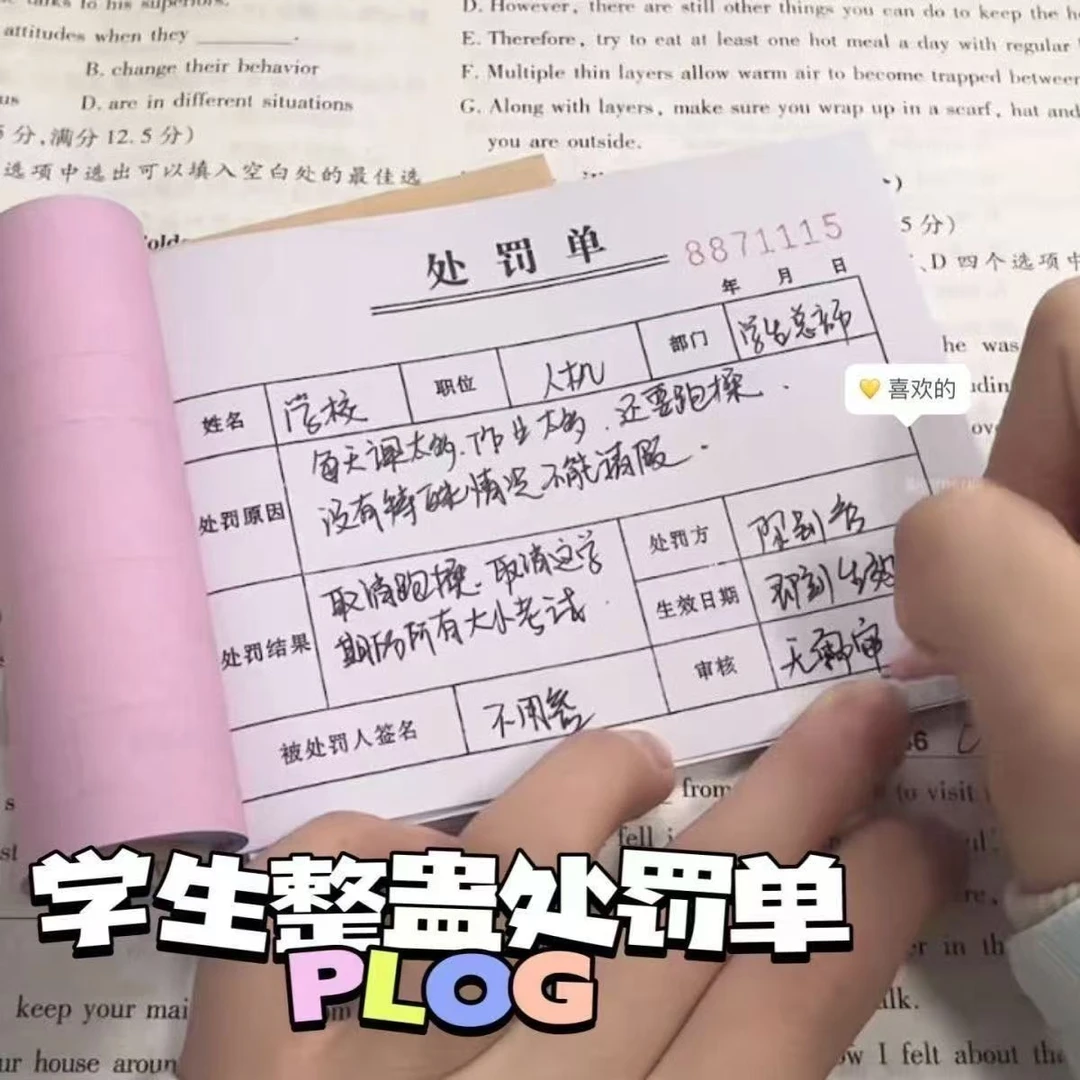 talks to his superiors.
attitudes when they ________.
B. change their behavior
us
D. are in different situations
5 分,满分 12.5 分)
选项中选出可以填入空白处的最佳选
D. However, there are still other things you can do to keep the
E. Therefore, try to eat at least one hot meal a day with regular
F. Multiple thin layers allow warm air to become trapped between
G. Along with layers, make sure you wrap up in a scarf, hat and
you are outside.
5 分)
、D 四个选项中
he was
处罚单
8871115
年 月 日
姓名 学校 职位 人机 部门 学生总部
💛 喜欢的
处罚原因
每天课太多、作业太多、还要跑操.
没有特殊情况不能请假.
处罚结果
取消跑操、取消这学
期的所有大小考试
处罚方
生效日期 即刻生效
审核 无需审
被处罚人签名 不用签
from
to visit
fell
学生整蛊处罚单
PLOG
er in th
keep your mai
alk.
ur house aroun
ow I felt about the